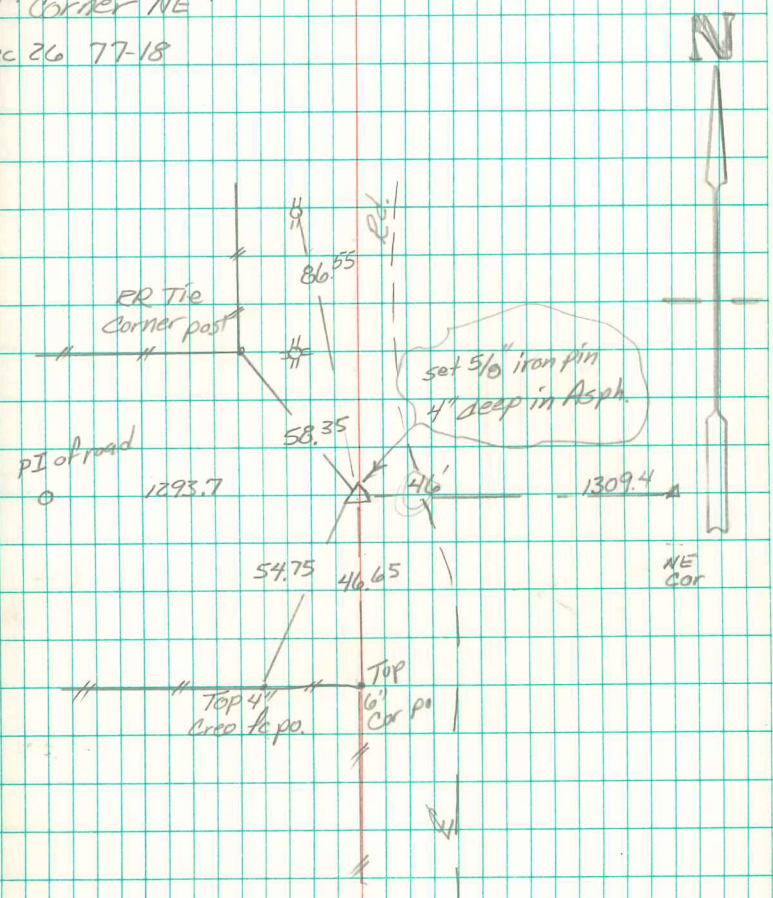 Corner NE
c 26 77-18
N
Rd.
86.55
RR Tie
Corner post
set 5/8" iron pin
4" deep in Asph.
58.35
PI of road
1293.7
46'
1309.4
NE
Cor
54.75
46.65
Top
6"
Cor po
Top 4"
Creo fc po.